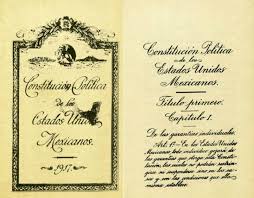 Constitución Política
de los
Estados Unidos
Mexicanos.
1917.
Constitución Política
de los
Estados Unidos
Mexicanos.
Título primero.
Capítulo I.
De las garantías individuales.
Art. 1º- En los Estados Unidos
Mexicanos todo individuo gozará de
las garantías que otorga esta Consti-
tución, las cuales no podrán restrin-
girse ni suspenderse sino en los ca-
sos y con las condiciones que ella misma
establece.